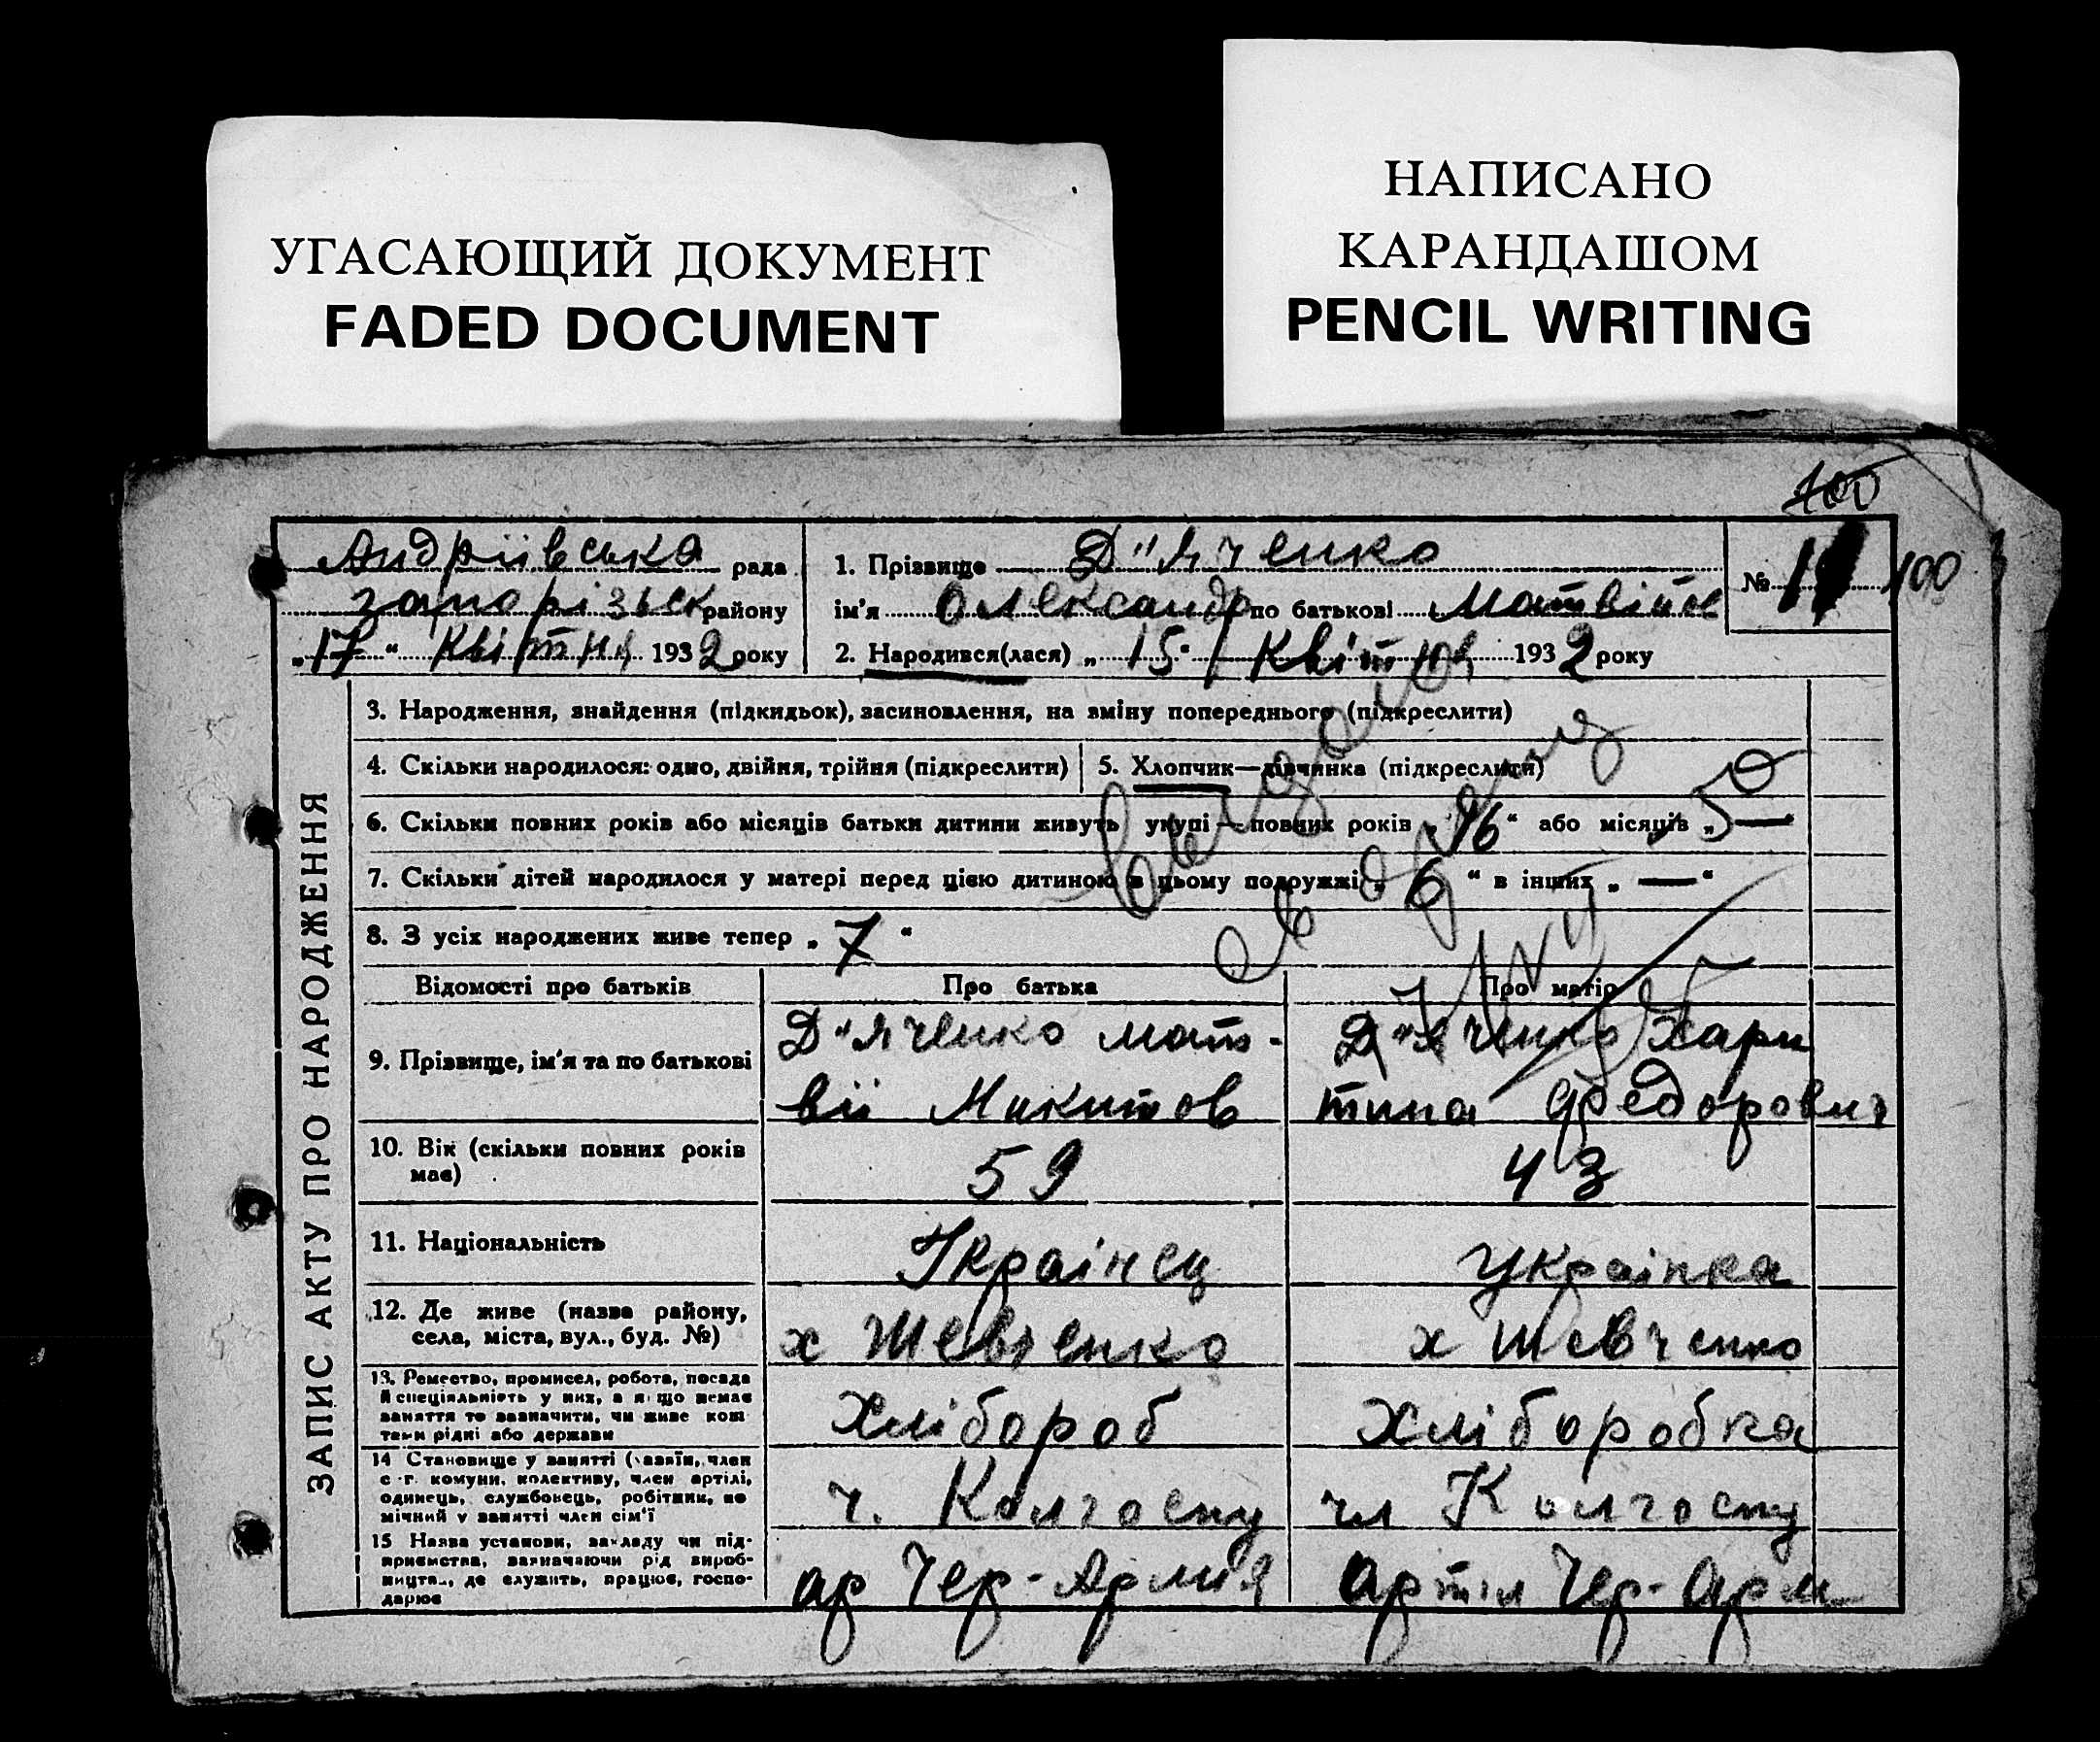 УГАСАЮЩИЙ ДОКУМЕНТ
FADED DOCUMENT
НАПИСАНО
КАРАНДАШОМ
PENCIL WRITING
100
Андріївська рада
Запорізьк району
„17“ Квітня 1932 року
1. Прізвище Д"яченко
ім'я Олександр по батькові Матвійов
2. Народився(лася) „15“ Квітня 1932 року
№ 100
ЗАПИС АКТУ ПРО НАРОДЖЕННЯ
3. Народження, знайдення (підкидьок), засиновлення, на зміну попереднього (підкреслити)
4. Скільки народилося: одно, двійня, трійня (підкреслити)
5. Хлопчик—дівчинка (підкреслити)
6. Скільки повних років або місяців батьки дитини живуть укупі — повних років „16“ або місяців „—“
7. Скільки дітей народилося у матері перед цією дитиною в цьому подружжі „6“ в інших „—“
8. З усіх народжених живе тепер „7“
Відомості про батьків
Про батька
Про матір
9. Прізвище, ім'я та по батькові
Д"яченко Мат-
вій Микитов
Д"яченко Хари
тина Федорович
10. Вік (скільки повних років
має)
59
43
11. Національність
Украінец
Украінка
12. Де живе (назва району,
села, міста, вул., буд. №)
х Шевченко
х Шевченко
13. Ремество, промисел, робота, посада
й спеціяльність у них, а якщо немає
заняття то зазначити, чи живе кош
тами рідні або держави
Хлібороб
Хліборобка
14 Становище у занятті (хазяїн, член
с.-г. комуни, колективу, член артілі,
одинець, службовець, робітник, по
мічний у занятті член сім'ї
ч. Колгоспу
чл Колгоспу
15 Назва установи, закладу чи під-
приємства, зазначаючи рід вироб-
ництва, де служить, працює, госпо-
дарює
ар Чер-Армія
Артіл Чер-Арм